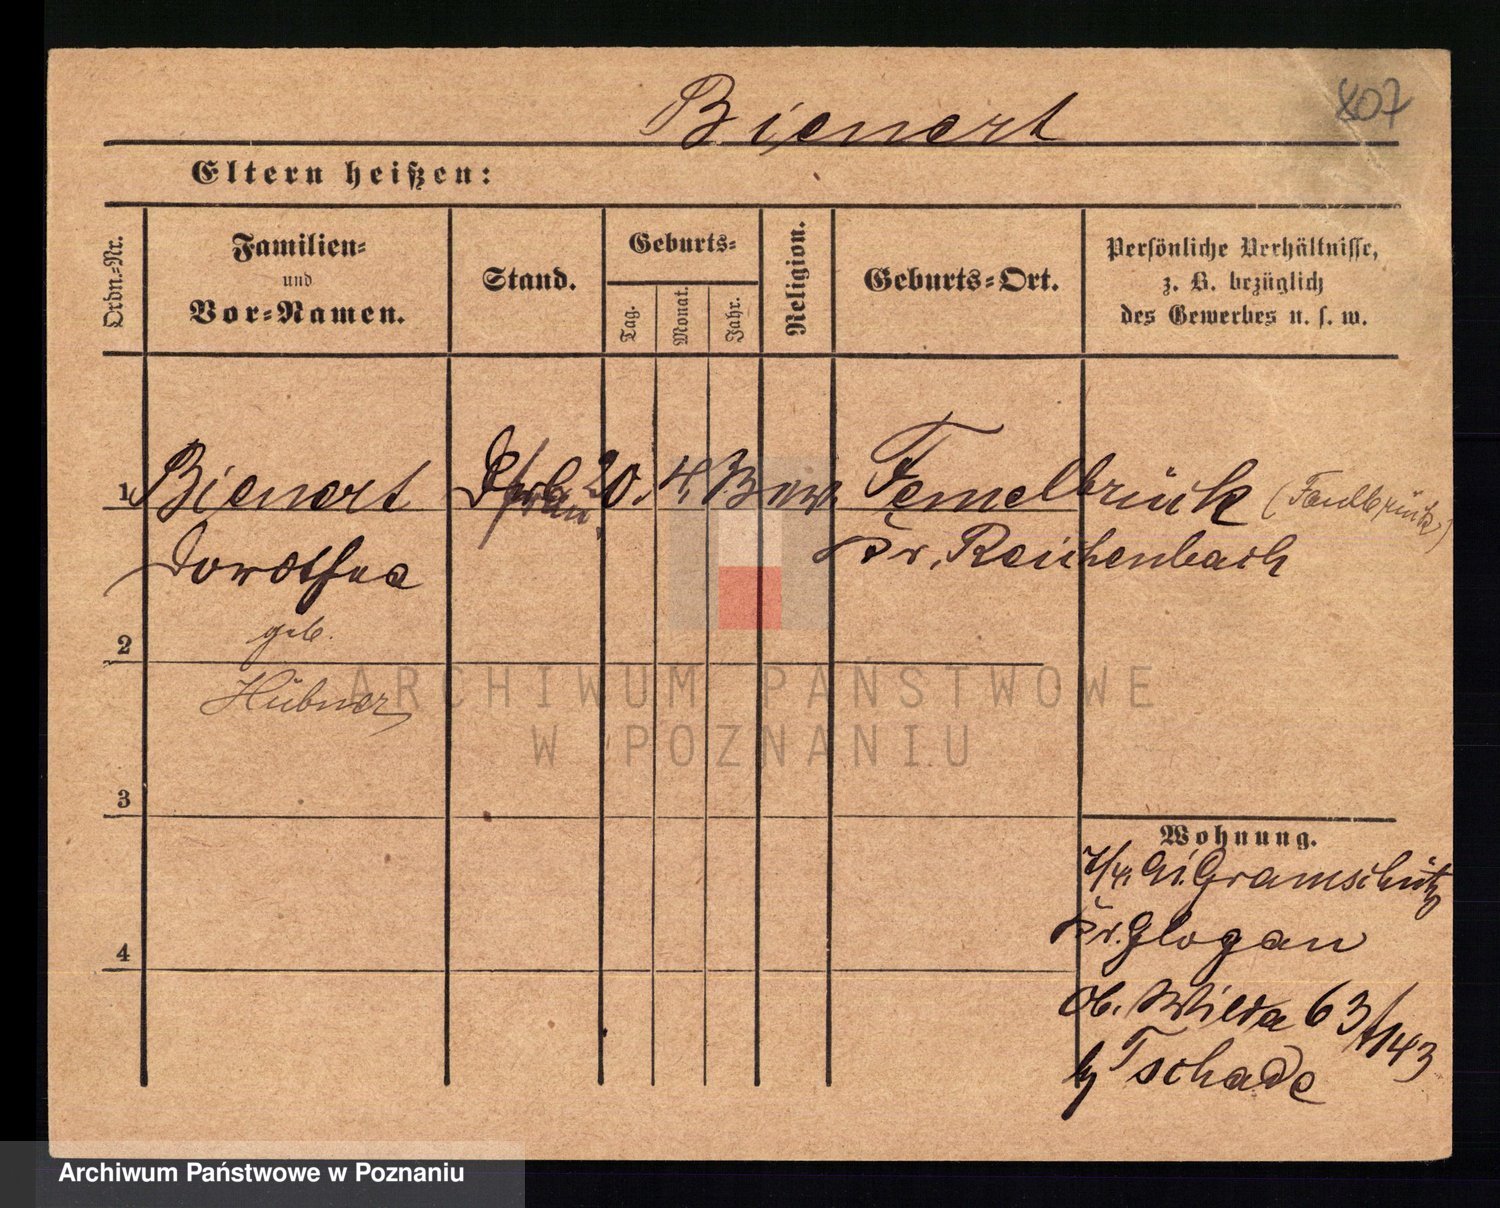 807
Bienert
Eltern heißen:
Ordn.-Nr.
Familien-
und
Vor-Namen.
Stand.
Geburts-
Tag.
Monat.
Jahr.
Religion.
Geburts-Ort.
Persönliche Verhältnisse,
z. B. bezüglich
des Gewerbes u. s. w.
1 Bienert 20. 4. Femelbrück (Faulbrück)
Dorothea Kr. Reichenbach
geb.
2
Hübner
ARCHIWUM PAŃSTWOWE
W POZNANIU
3
Wohnung.
7/4. Gramschütz
Kr. Glogau
4
Ob. Wilda 63 /143
b/ Tschade
Archiwum Państwowe w Poznaniu